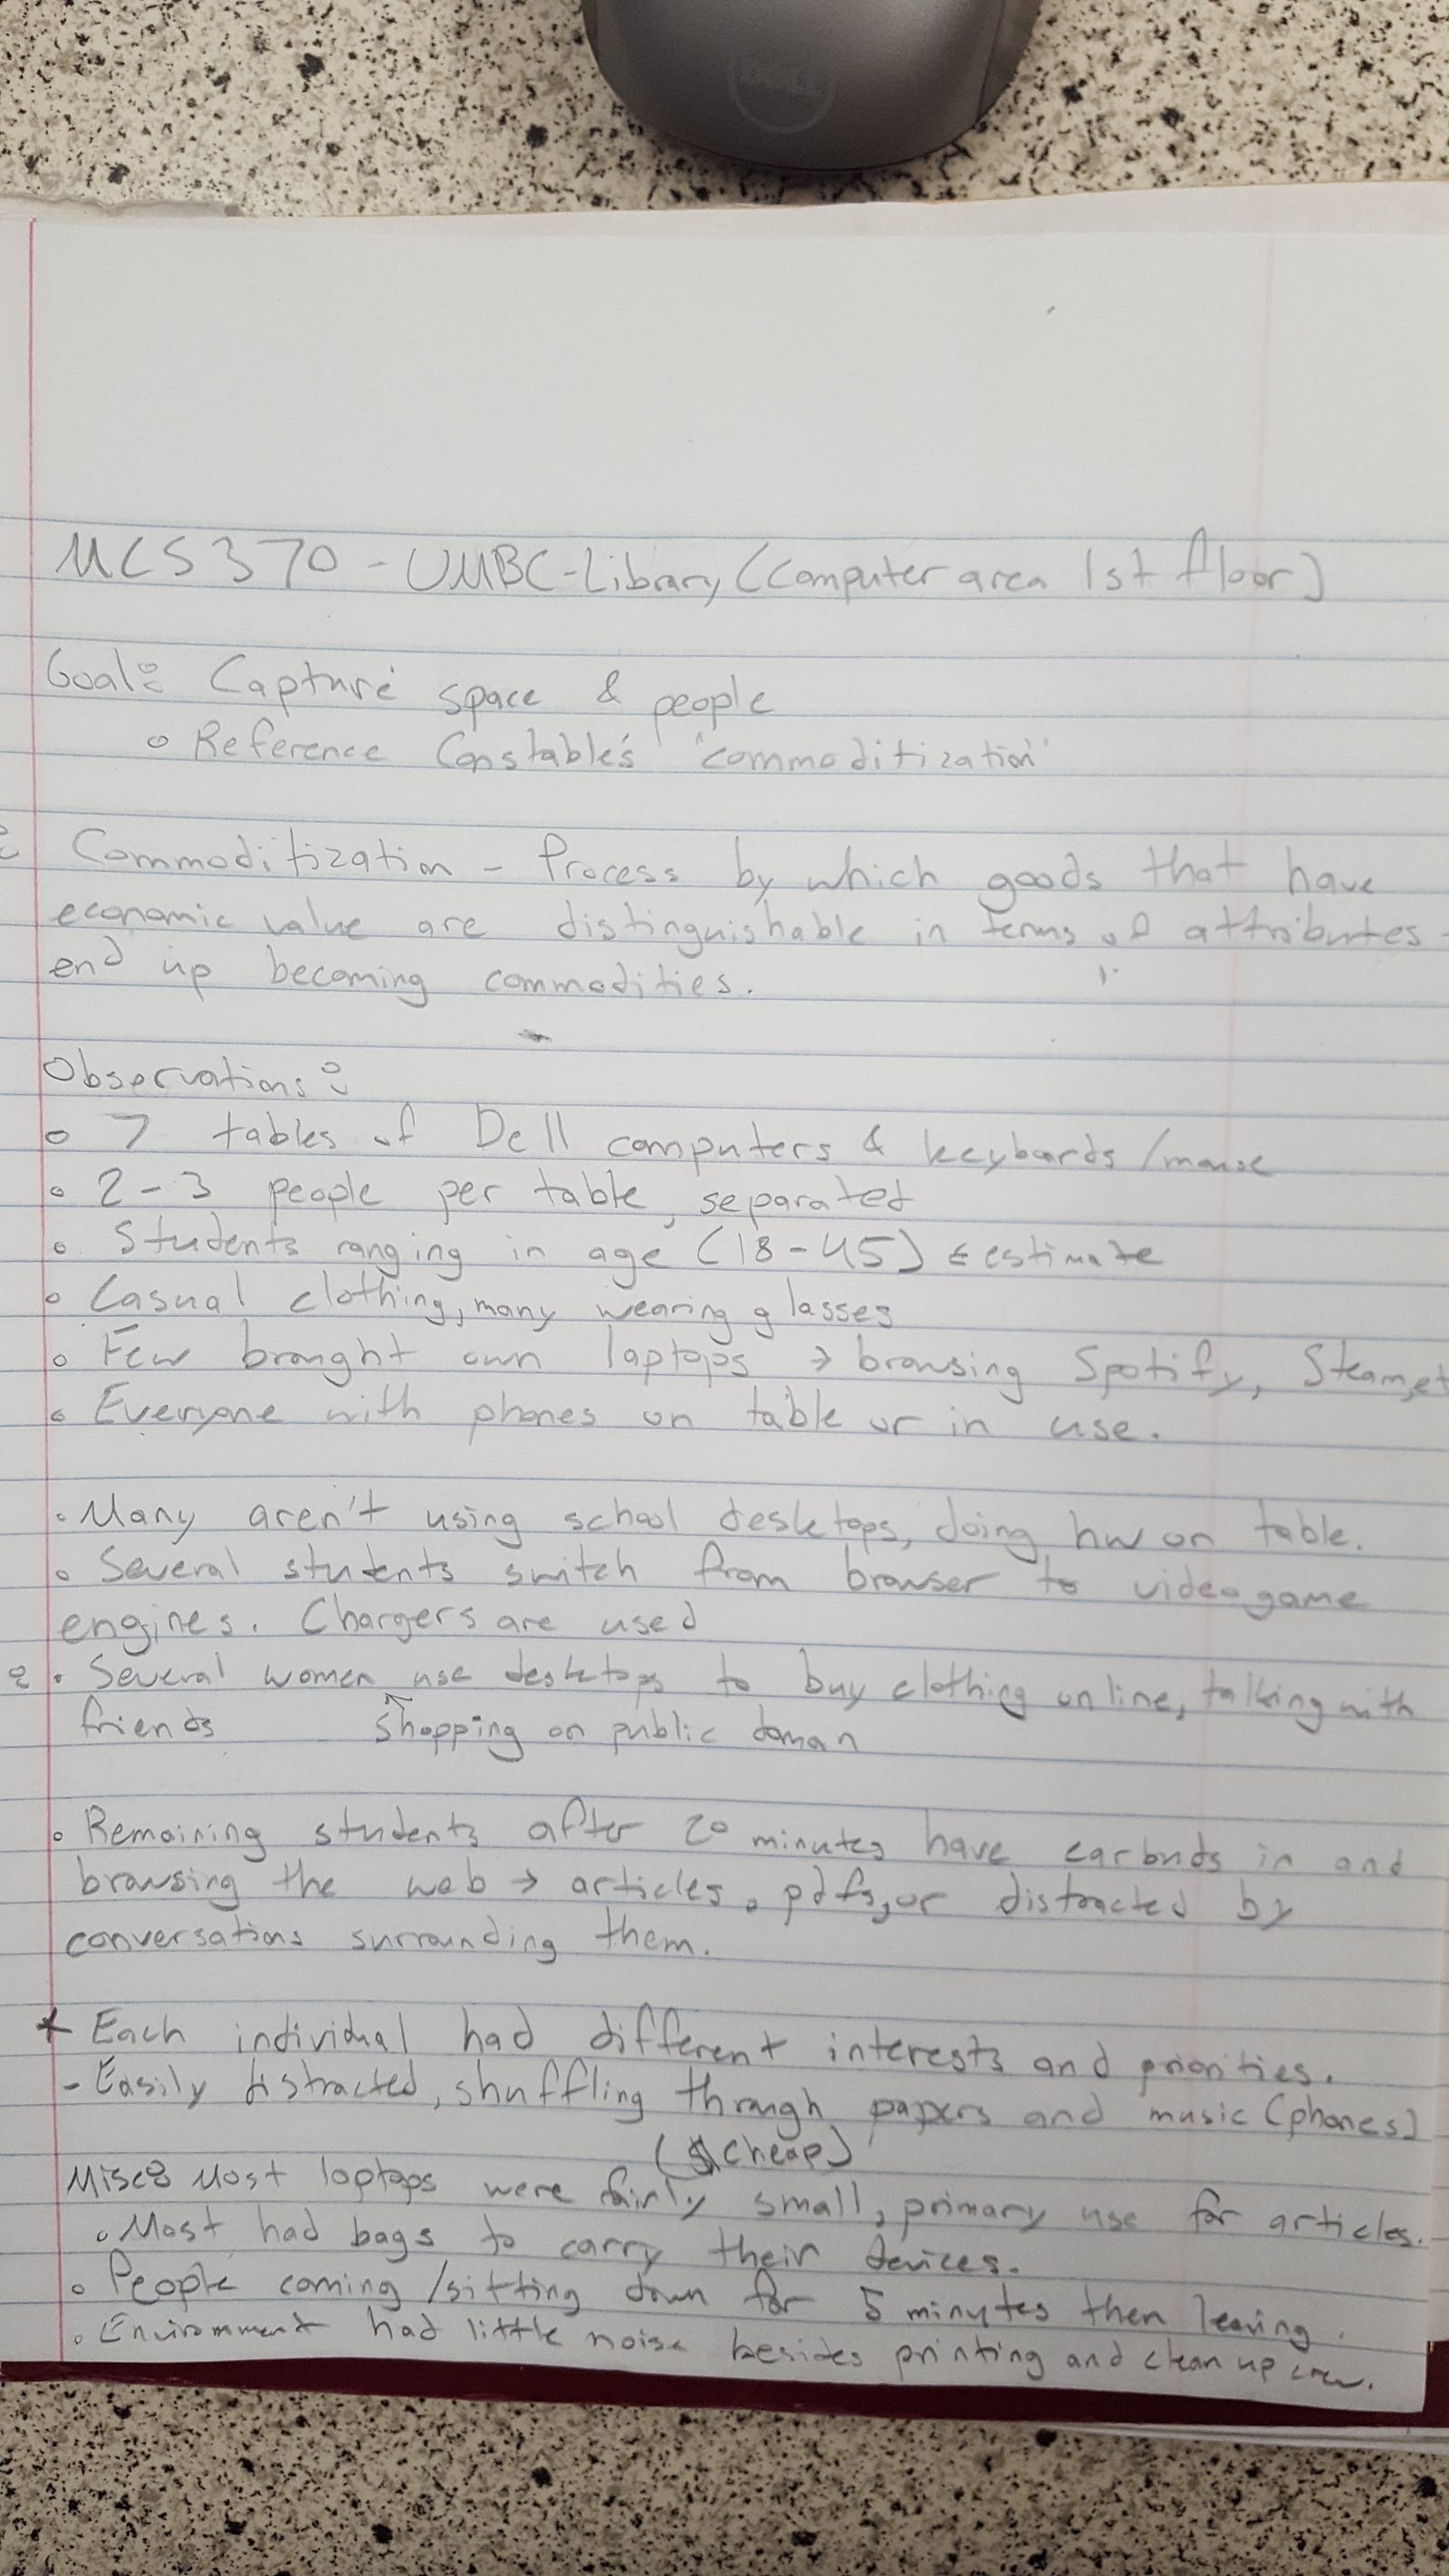 DELL
MCS 370 - UMBC-Library (Computer area 1st floor)
Goal: Capture space & people
o Reference Constable's "commoditization"
Commoditization - Process by which goods that have
economic value are distinguishable in terms of attributes -
end up becoming commodities.
Observations:
o 7 tables of Dell computers & keyboards/mouse
o 2-3 people per table, separated
o Students ranging in age (18-45) ← estimate
o Casual clothing, many wearing glasses
o Few brought own laptops → browsing Spotify, Steam, et
o Everyone with phones on table or in use.
. Many aren't using school desktops, doing hw on table.
o Several students switch from browser to videogame
engines. Chargers are used
. Several women use desktops to buy clothing online, talking with
friends shopping on public doman
o Remaining students after 20 minutes have earbuds in and
browsing the web → articles, pdfs, or distracted by
conversations surrounding them.
* Each individual had different interests and priorities.
- Easily distracted, shuffling through papers and music (phones)
($ cheap)
Misc: Most laptops were fairly small, primary use for articles.
o Most had bags to carry their devices.
o People coming/sitting down for 5 minutes then leaving.
. Environment had little noise besides printing and clean up crew.